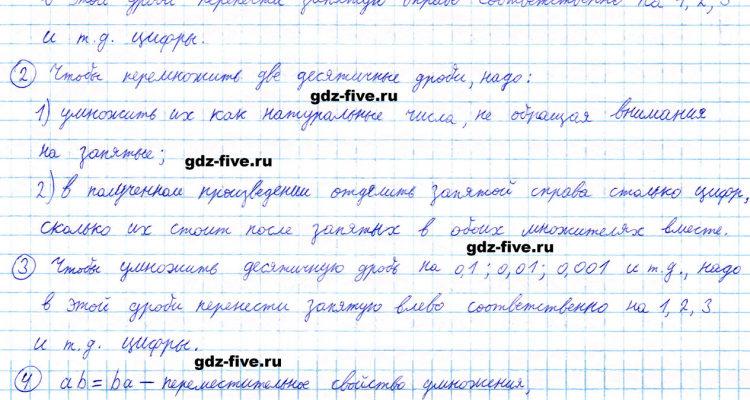 в этой дроби перенести запятую вправо соответственно на 1, 2, 3
и т.д. цифры.
② Чтобы перемножить две десятичные дроби, надо:
gdz-five.ru
1) умножить их как натуральные числа, не обращая внимания
на запятые;
gdz-five.ru
2) в полученном произведении отделить запятой справа столько цифр,
сколько их стоит после запятых в обоих множителях вместе.
gdz-five.ru
③ Чтобы умножить десятичную дробь на 0,1; 0,01; 0,001 и т.д., надо
в этой дроби перенести запятую влево соответственно на 1, 2, 3
и т.д. цифры.
gdz-five.ru
④ ab = ba – переместительное свойство умножения,